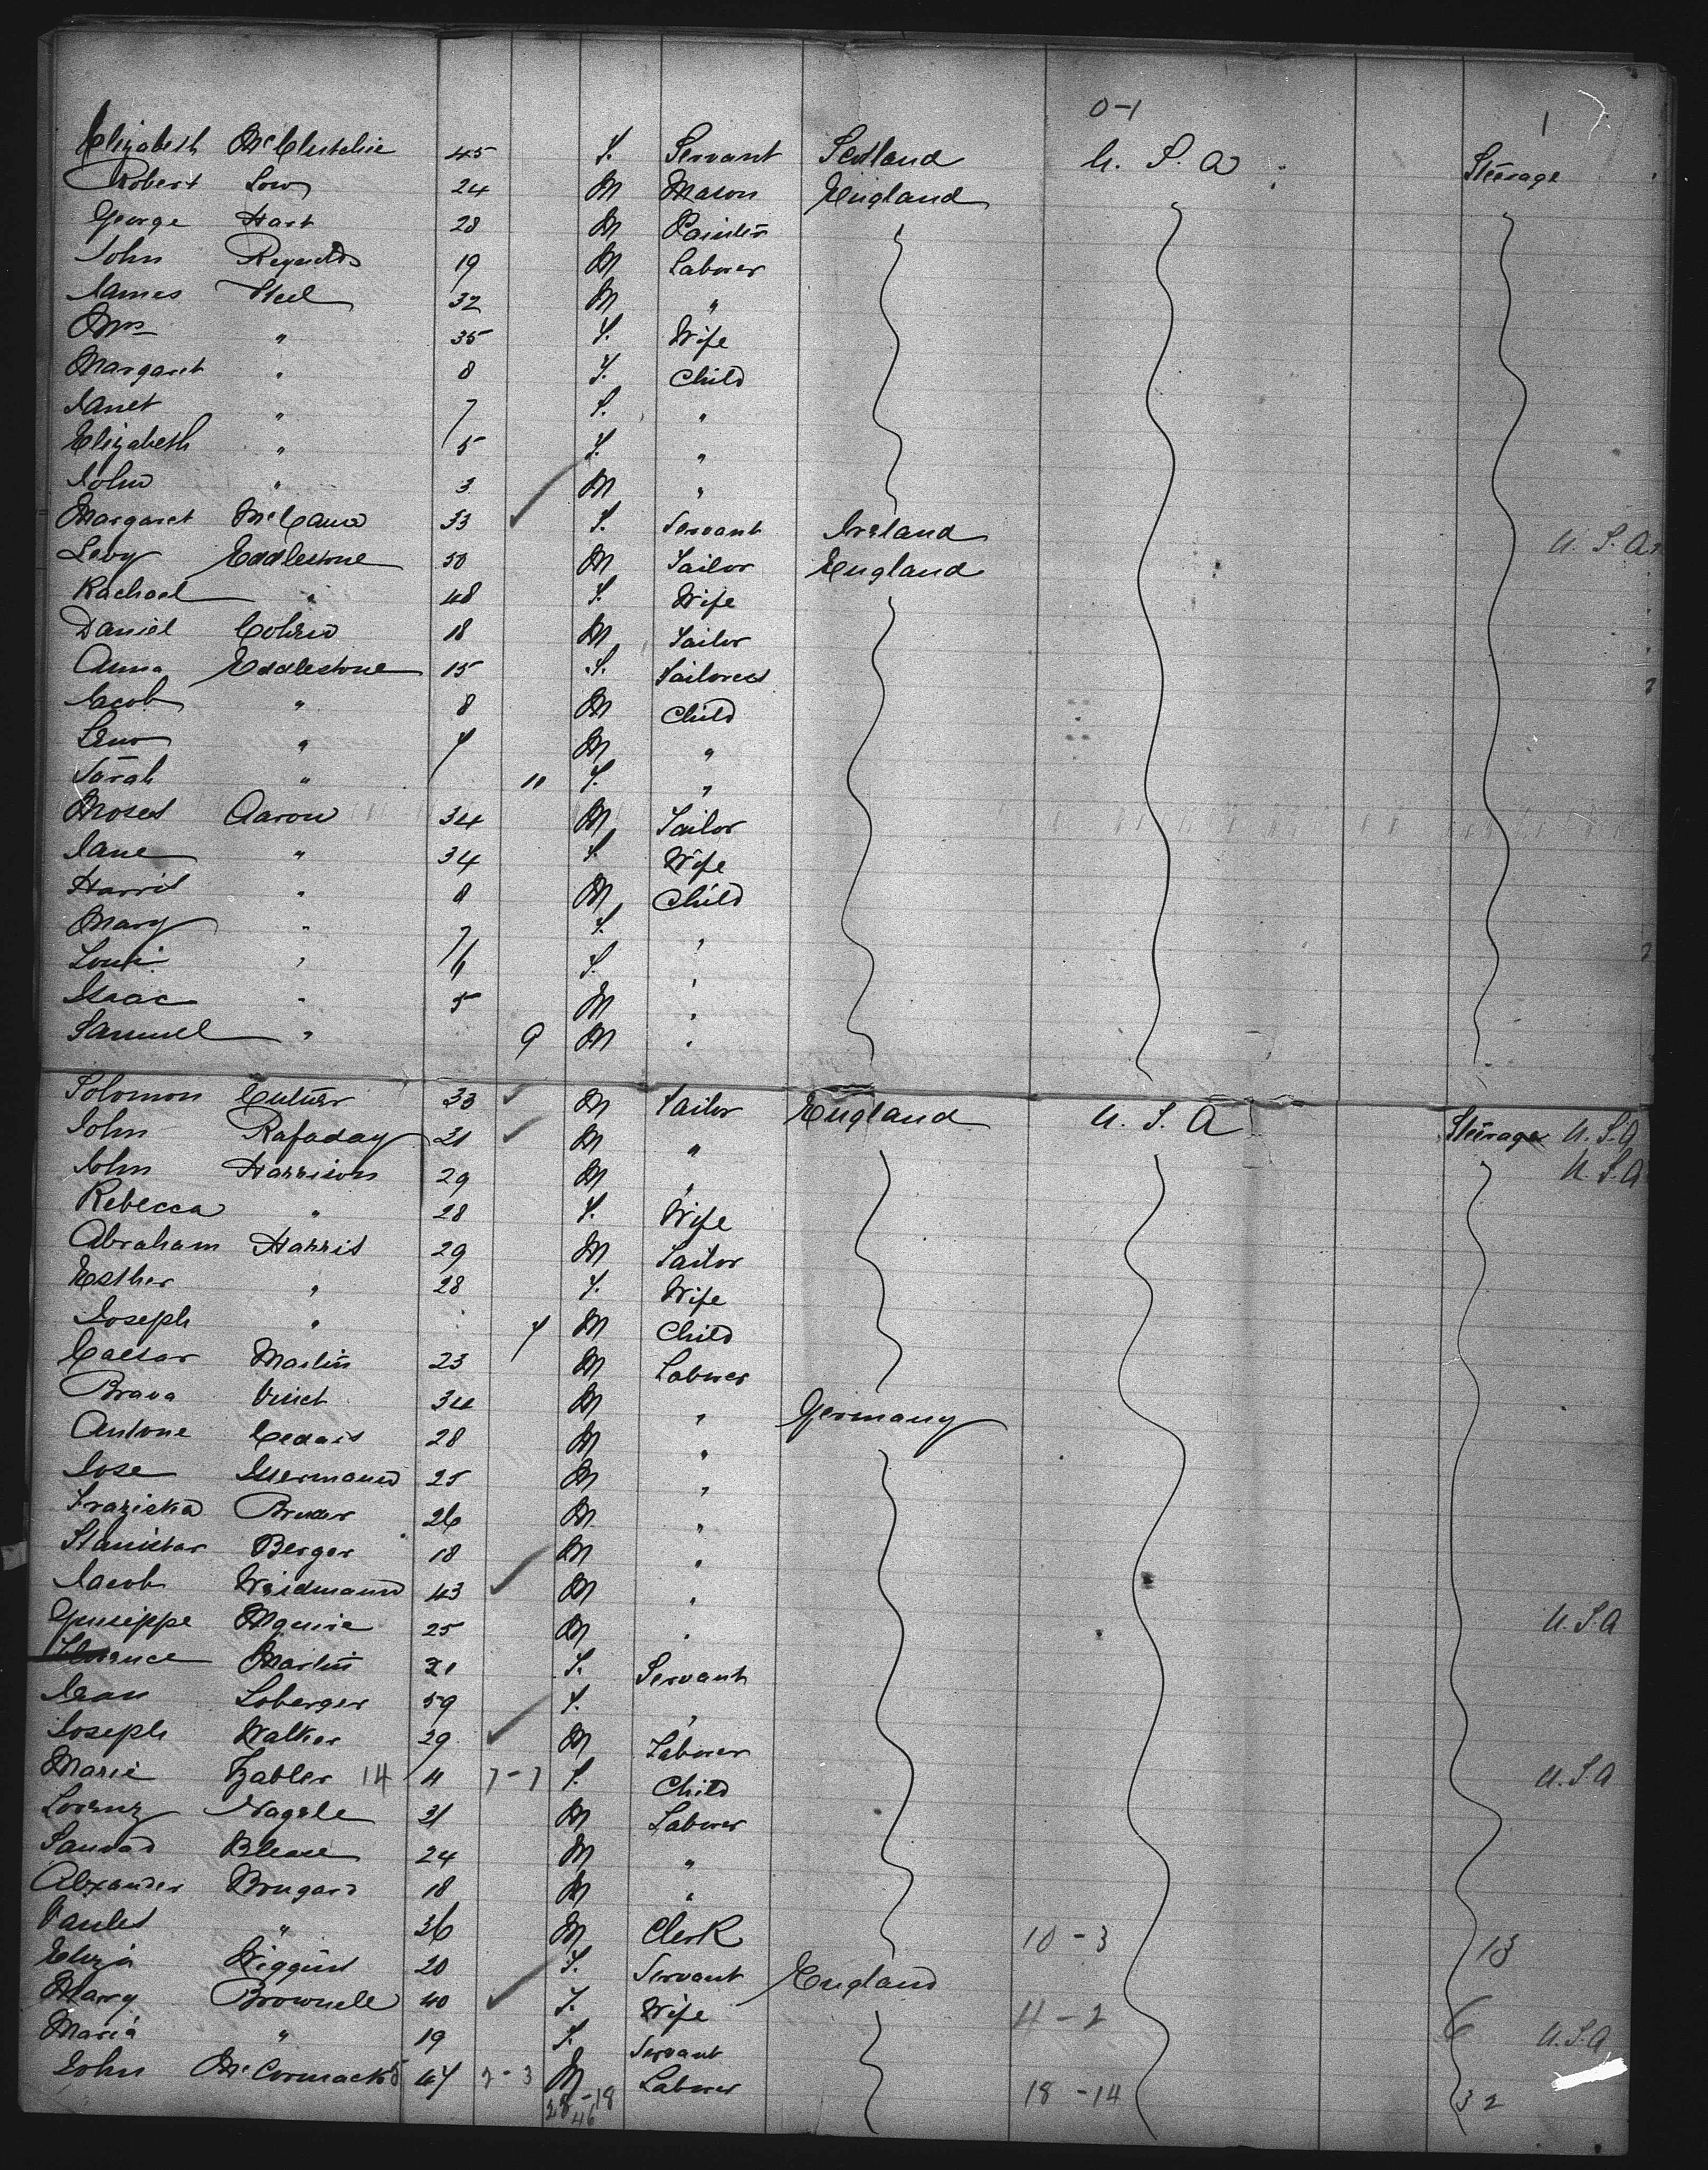 0-1 1
Elizabeth McClutchie 45 F. Servant Scotland U. S. A Steerage
Robert Low 24 M Mason England
George Hart 28 M Painter
John Reynolds 19 M Laborer
James Steel 32 M "
Mrs " 35 F. Wife
Margaret " 8 F. Child
Janet " 7 F. "
Elizabeth " 5 F. "
John " 3 M "
Margaret McCann 33 F. Servant Ireland U. S. A
Levy Eddlestone 50 M Tailor England
Rachael " 48 F. Wife
Daniel Cohen 18 M Tailor
Anna Eddlestone 15 F. Tailoress
Jacob " 8 M Child
" 4 M "
Sarah " 11 F. "
Moses Aaron 34 M Tailor
Jane " 34 F. Wife
Harris " M Child
Mary " 7 F. "
" F. "
Isaac " 5 M "
Samuel " 9 M "
Solomon 33 M Tailor England U. S. A Steerage U. S. A
John Rafaday 21 M " U. S. A
John Harrison 29 M "
Rebecca " 28 F. Wife
Abraham Harris 29 M Tailor
Esther " 28 F. Wife
Joseph " 4 M Child
Caesar Martin 23 M Laborer
Brava 34 M " Germany
Antone 28 M "
Jose 25 M "
Fraziska 26 M "
Berger 18 M "
Jacob Weidmann 43 M "
Guiseppe 25 M " U.S.A
Martin 21 F. Servant
Jean Loberger 59 F. "
Joseph Walker 29 M Laborer
Marie Zabler 14 11 7-7 F. Child U.S.A
Lorenz Nagele 31 M Laborer
Blease 24 M "
Alexander Brugard 18 M "
" 36 M Clerk 10-3 13
Eliza Higgins 20 F. Servant England
Mary Brownele 40 F. Wife 4-2 6
Maria " 19 F. Servant U.S.A
John McCormack 47 7-3 M Laborer 18-14 32
28-18
46